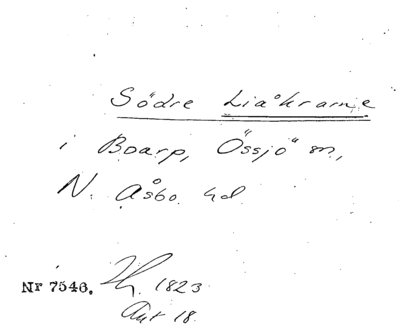 Södre Liaåkrarne
i Boarp, Össjö sn,
N. Åsbo hd
Nr 7546. 1823
Akt 18.